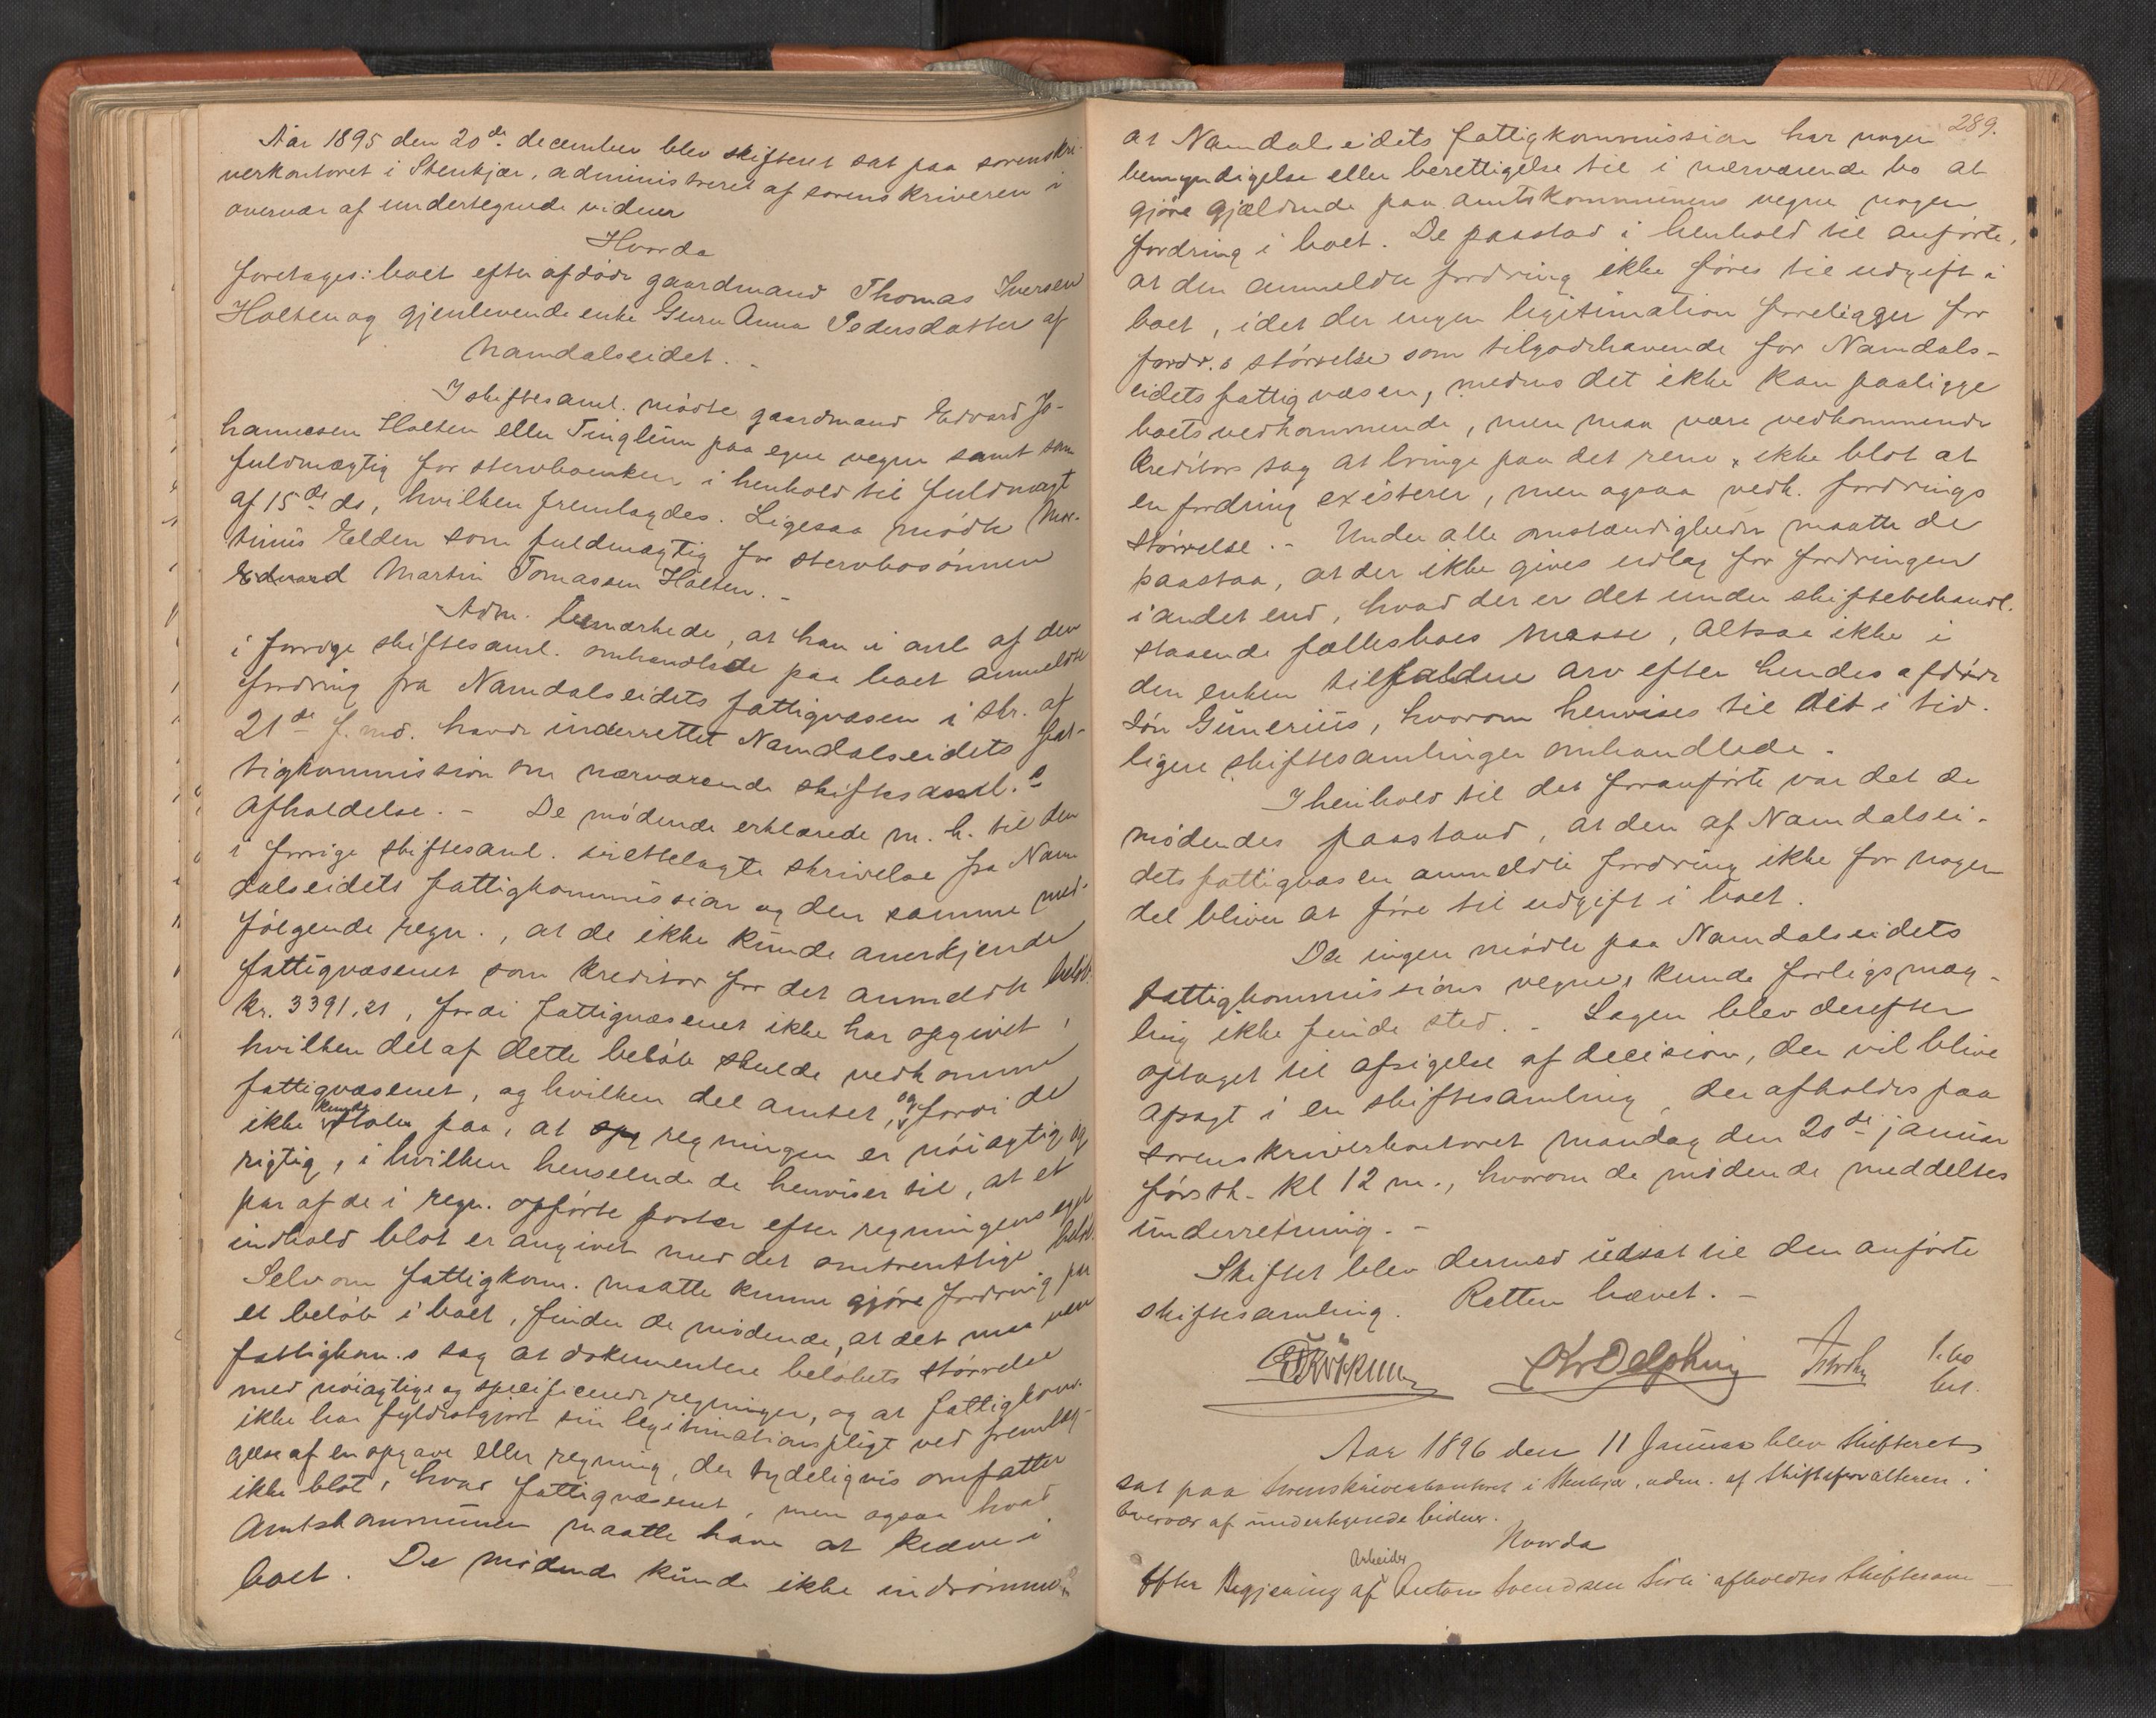 Aar 1895 den 20de december blev skifteret sat paa sorenskri-
verkontoret i Stenkjær, administreret af sorenskriveren i
overvær af undertegnede vidner
Hvorda
foretages: boet efter afdøde gaardmand Thomas Iversen
Holten og gjenlevende enke Guru Anna Pedersdatter af
Namdalseidet. -
I skiftesaml. mødte gaardmand Edvard Jo-
hannesen Holten eller Tinglum paa egne vegne samt som
fuldmægtig for stervboenken i henhold til fuldmagt
af 15de ds, hvilken fremlagdes. Ligesaa mødte Mor-
tinus Elden som fuldmægtig for stervbosønnen
Edvard Martin Tomassen Holten. -
Adm. bemærkede, at han i anl af den
i forrige skiftesaml. omhandlede paa boet anmeldte
fordring fra Namdalseidets fattigvæsen i skr. af
21de f. md. havde underrettet Namdalseidets fat-
tigkommission om nærværende skiftesaml.s
afholdelse. - De mødende erklærede m. h. til den
i forrige skiftesaml. irettelagte skrivelse fra Nam
dalseidets fattigkommission og den samme med-
følgende regn., at de ikke kunde anerkjende
fattigvæsenet som kreditor for det anmeldte beløb
kr. 3391,21, fordi fattigvæsenet ikke har opgivet,
hvilken del af dette beløb skulde vedkomme
fattigvæsenet, og hvilken del amtet, og fordi de
ikke kunde stole paa, at opg regningen er nøiagtig og
rigtig, i hvilken henseende de henviser til, at et
par af de i regn. opførte poster efter regningens eget
indhold blot er angivet med det omtrentlige beløb.
Selv om fattigkom. maatte kunne gjøre fordring paa
et beløb i boet, finder de mødende, at det maa være
fattigkom.s sag at dokumentere beløbets størrelse
med nøiagtige og specificerede regninger, og at fattigkom.
ikke har fyldestgjort sin legitimationspligt ved fremlæg-
gelse af en opgave eller regning, der tydeligvis omfatter
ikke blot, hvad fattigvæsenet, men ogsaa hvad
Amtskommunen maatte have at kræve i
boet. De mødende kunde ikke indrømme,
289.
at Namdalseidets fattigkommission har nogen
bemyndigelse eller berettigelse til i nærværende bo at
gjøre gjældende paa amtskommunens vegne nogen
fordring i boet. De paastod i henhold til anførte,
at den anmeldte fordring ikke føres til udgift i
boet, idet der ingen legitimation foreligger for
fordr.s størrelse som tilgodehavende for Namdals-
eidets fattigvæsen, medens det ikke kan paaligge
boets vedkommende, men maa være vedkommende
kreditors sag at bringe paa det rene, ikke blot at
en fordring existerer, men ogsaa vedk. fordrings
størrelse. - Under alle omstændigheder maatte de
paastaa, at der ikke gives udlæg for fordringen
i andet end, hvad der er det under skiftebehandl.
staaende fællesboes masse, altsaa ikke i
den enken tilfaldne arv efter hendes afdøde
søn Gunerius, hvorom henvises til det i tid-
ligere skiftesamlinger omhandlede.
I henhold til det foranførte var det de
mødendes paastand, at den af Namdalsei-
dets fattigvæsen anmeldte fordring ikke for nogen
del bliver at føre til udgift i boet.
Da ingen mødte paa Namdalseidets
fattigkommissions vegne, kunde forligsmæg-
ling ikke finde sted. - Sagen blev derefter
optaget til afsigelse af decision, der vil blive
afsagt i en skiftesamling, der afholdes paa
sorenskriverkontoret mandag den 20de januar
førstk. kl 12 m., hvorom de mødende meddeltes
underretning. -
Skiftet blev dermed udsat til den anførte
skiftesamling. Retten hævet. -
KrDelphin
Aar 1896 den 11 Januar blev Skifteret
sat paa Sorenskriverkontoret i Stenkjær, adm. af Skifteforvalteren i
Overvær af undertegnede Vidner.
Hvorda
Efter Begjæring af Arbeider Anton Svendsen afholdtes Skiftesam